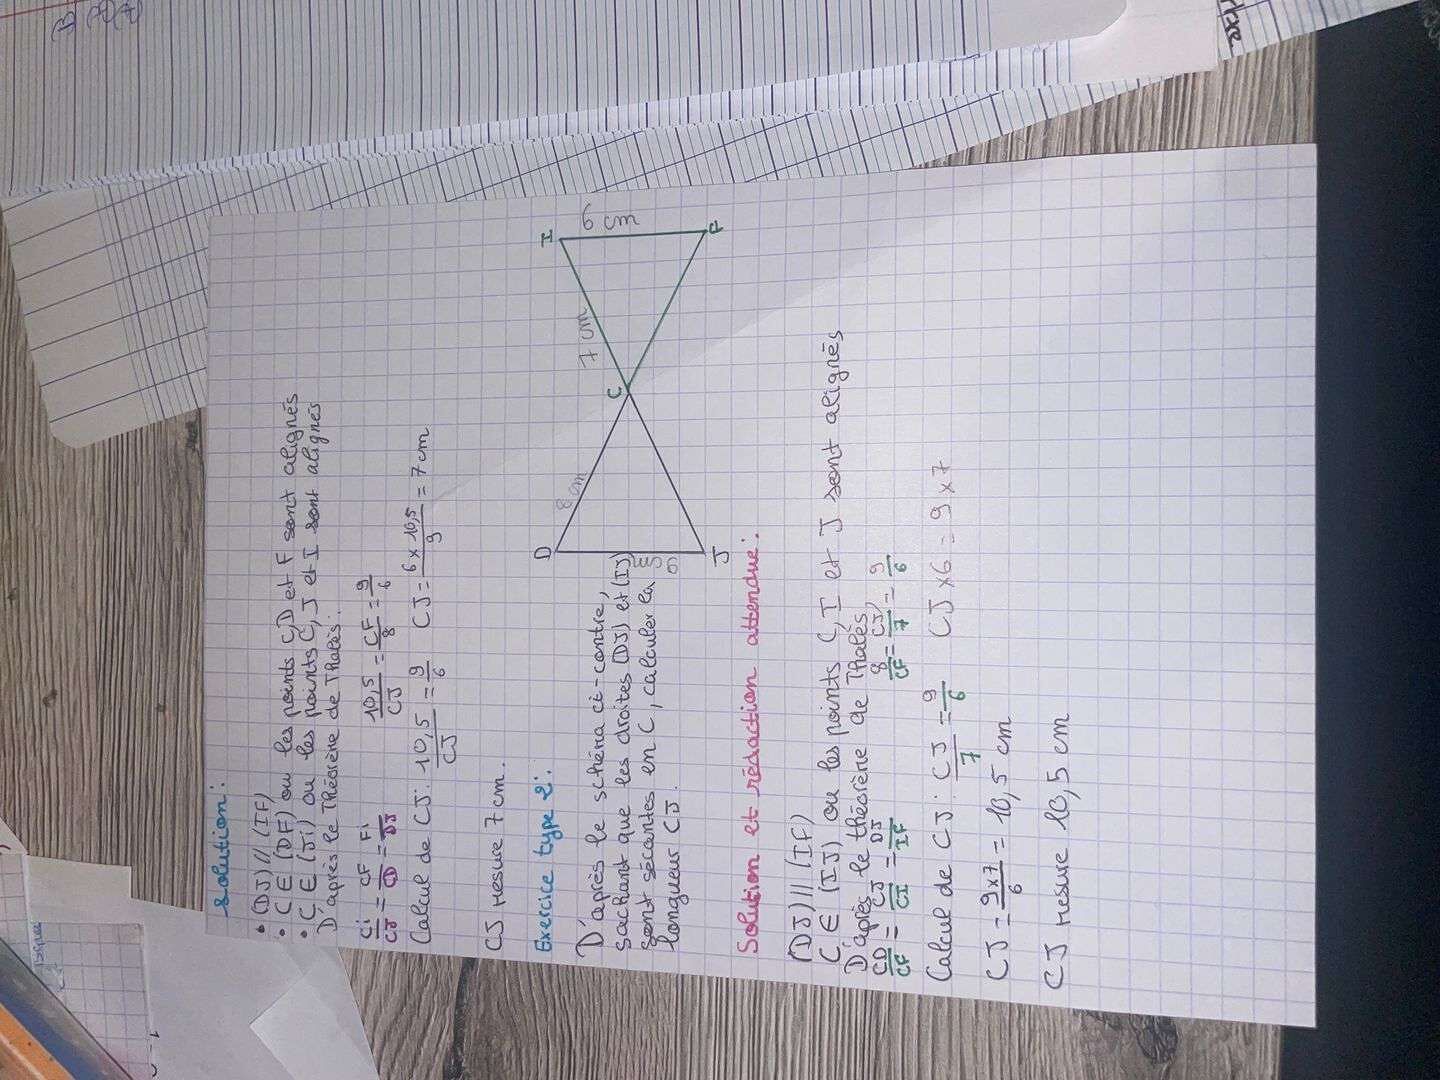 Solution:
• (DJ) // (IF)
• C ∈ (DF) ou les points C,D et F sont alignés
• C, ∈ (Ji) ou les points C, J et I sont alignés
D'après le Théorène de Thalès:
Ci/CJ = CF/CD = Fi/DJ 10,5/CJ = CF/8 = 9/6
Calcul de CJ: 10,5/CJ = 9/6 CJ = 6 x 10,5/9 = 7 cm
CJ mesure 7 cm.
Exercice type 2:
D'après le schéna ci-contre,
sachant que les droites (DJ) et (IJ)
sont sécantes en C, calculer la
longueur CJ.
D
8 cm
9 cm
J
C
7 cm
I
6 cm
F
Solution et rédaction attendue:
(DJ) // (IF)
C ∈ (IJ) ou les points C, I et J sont alignés
D'après le théorène de Thalès,
CD/CF = CJ/CI = DJ/IF 8/CF = CJ/7 = 9/6
Calcul de CJ: CJ/7 = 9/6 CJ x 6 = 9 x 7
CJ = 9x7/6 = 10,5 cm
CJ mesure 10,5 cm